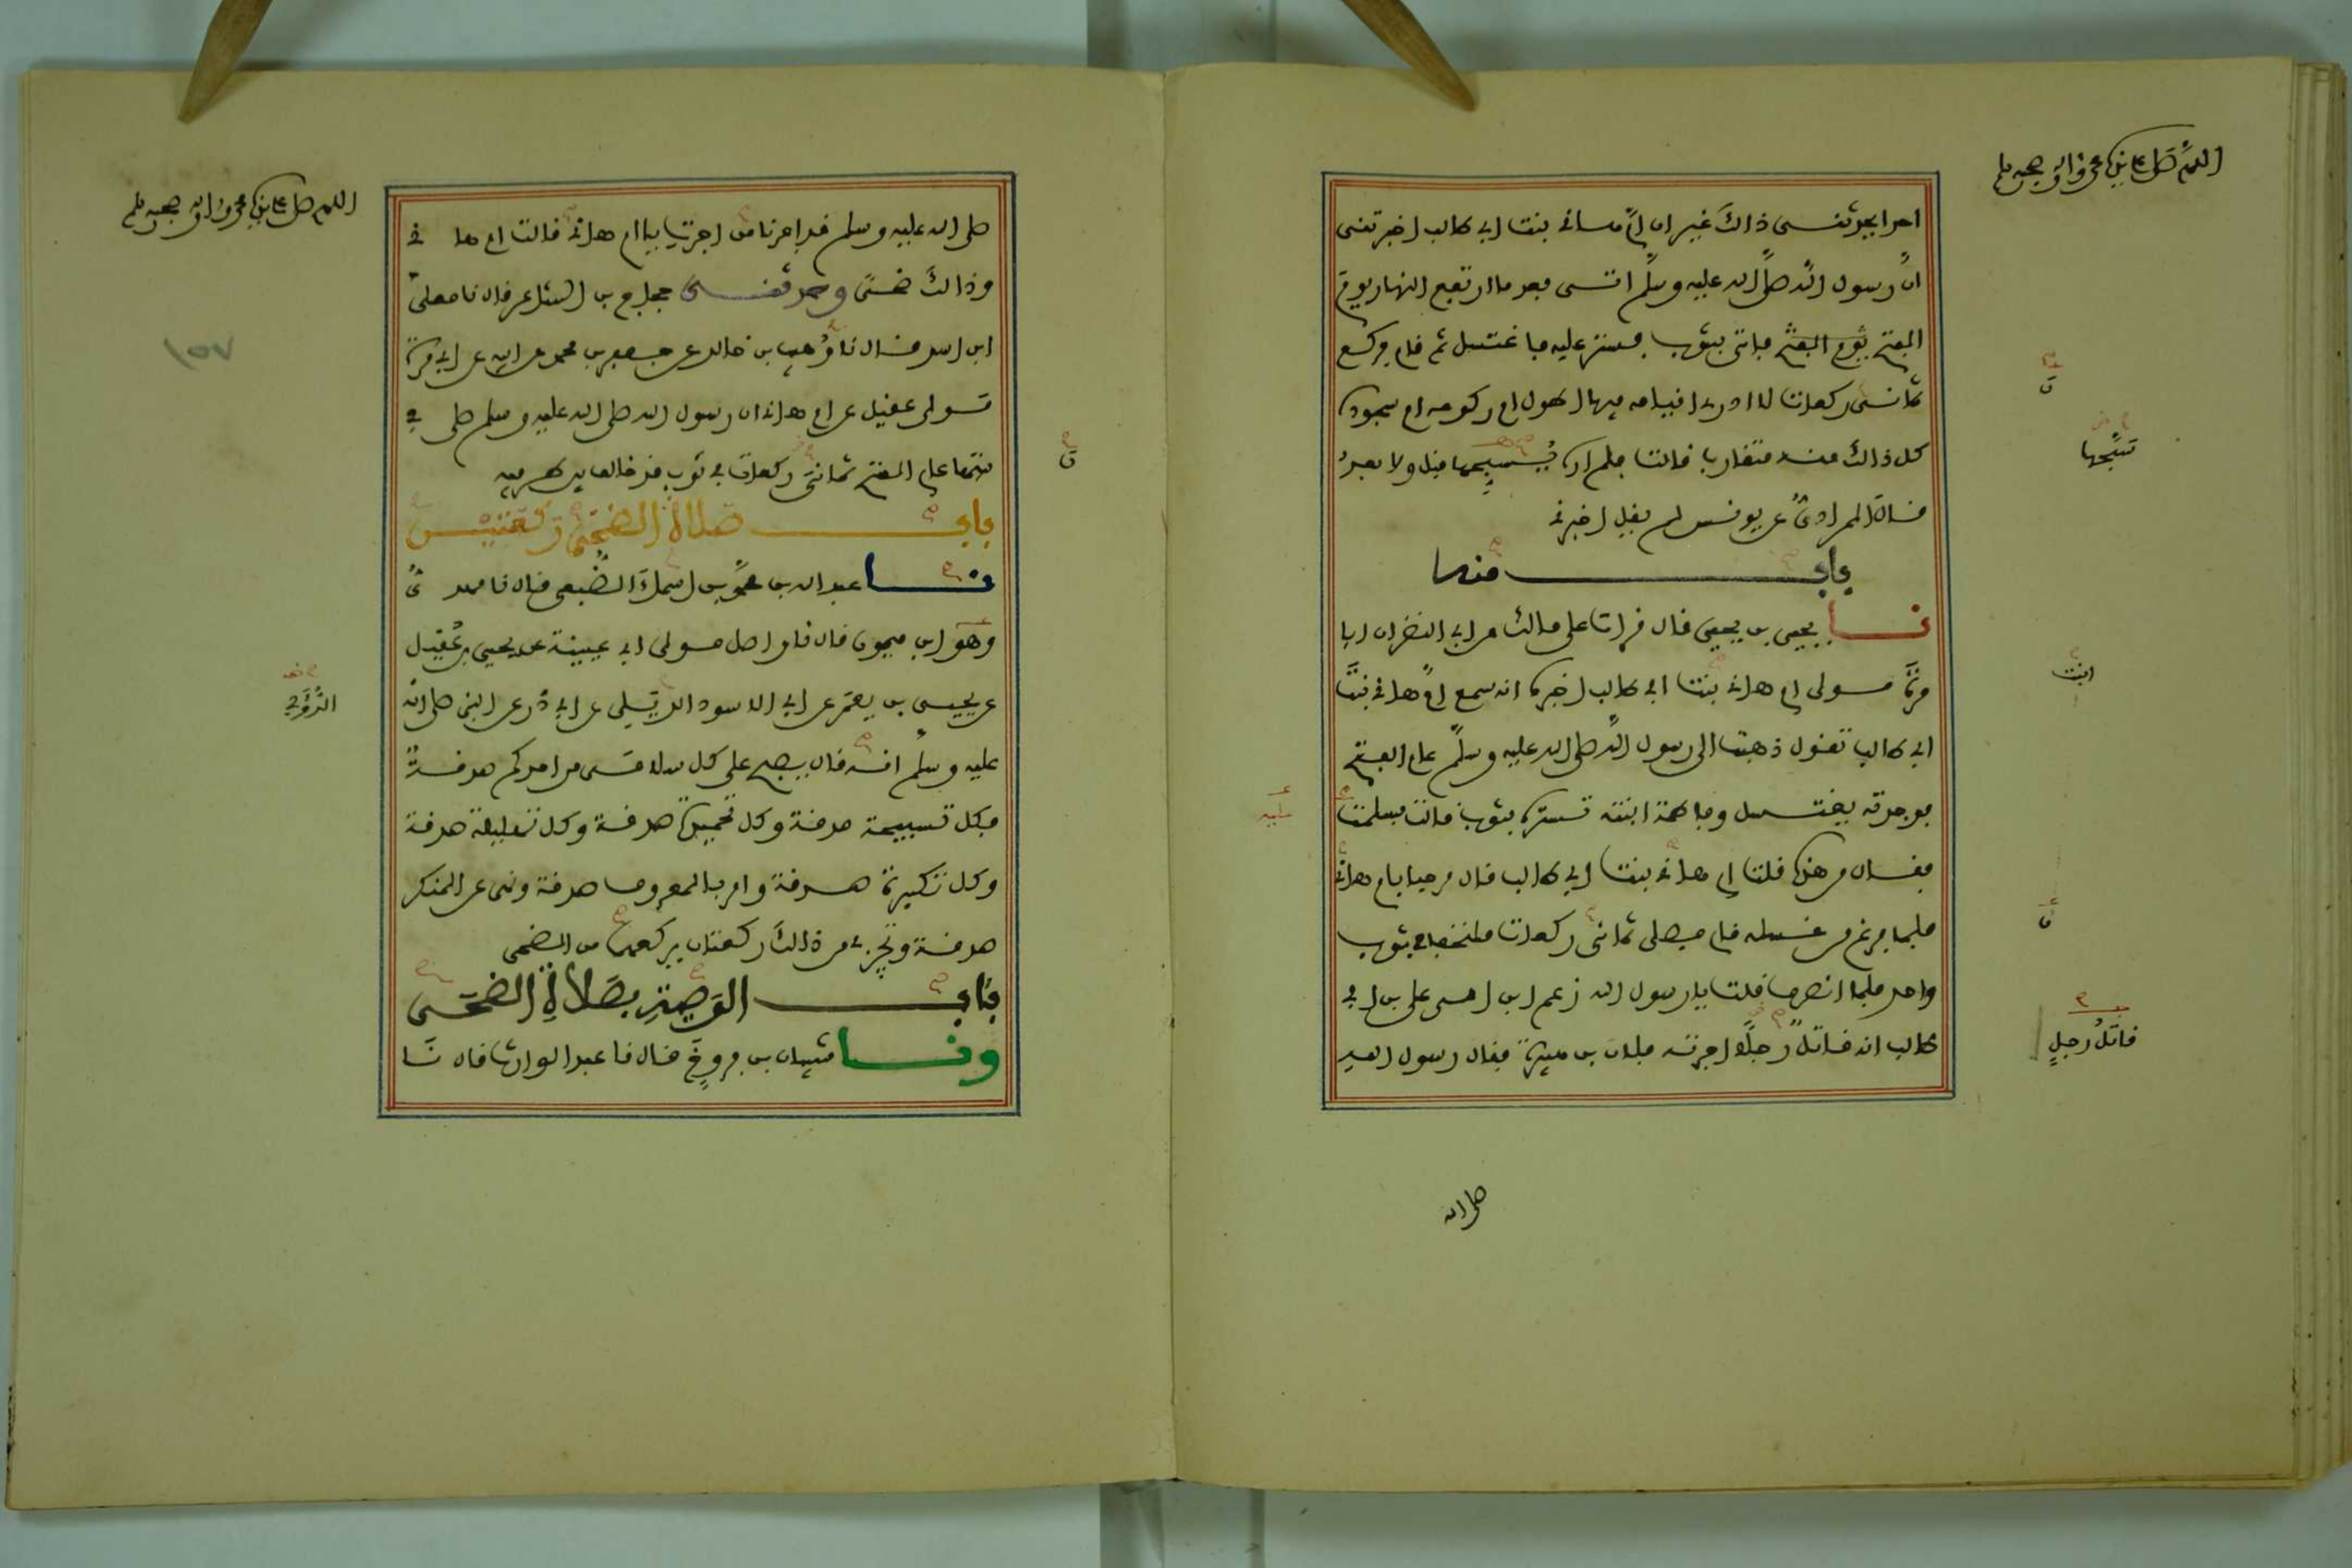 اللهم صل على نبيك محمد واله وصحبه وسلم
احدا يحدثنى ذالك غير ان ام هانئ بنت ابى طالب اخبرتنى
ان رسول الله صلى الله عليه وسلم اتى بعد ما ارتفع النهار يوم
الفتح فاتى بثوب فستر عليه فاغتسل ثم قام فركع
ثمانى ركعات لا ادرى اقيامه فيها اطول ام ركوعه ام سجوده
كل ذالك منه متقارب قالت فلم اره يسبحها قبل ولا بعد
قال المرادى عن يونس لم يقل اخبرنى
باب منه
نا يحيى بن يحيى قال قرات على مالك عن ابى النضر ان ابا
مرة مولى ام هانئ بنت ابى طالب اخبره انه سمع ام هانئ بنت
ابى طالب تقول ذهبت الى رسول الله صلى الله عليه وسلم عام الفتح
فوجدته يغتسل وفاطمة ابنته تستره بثوب قالت فسلمت
فقال من هذه قلت ام هانئ بنت ابى طالب قال مرحبا بام هانئ
فلما فرغ من غسله قام فصلى ثمانى ركعات ملتحفا فى ثوب
واحد فلما انصرف قلت يا رسول الله زعم ابن امى على بن ابى
طالب انه قاتل رجلا اجرته فلان بن هبيرة فقال رسول الله
تسبحها
ابنت
قاتل رجل
صلى الله
اللهم صل على نبيك محمد واله وصحبه وسلم
صلى الله عليه وسلم قد اجرنا من اجرت يا ام هانئ قالت ام هانئ
وذالك ضحى وحدثنى حجاج بن الشاعر قال نا معلى
ابن اسد قال نا وهيب بن خالد عن جعفر بن محمد عن ابيه عن ابى مرة
مولى عقيل عن ام هانئ ان رسول الله صلى الله عليه وسلم صلى فى
بيتها عام الفتح ثمانى ركعات فى ثوب قد خالف بين طرفيه
باب صلاة الضحى ركعتين
نا عبد الله بن محمد بن اسماء الضبعى قال نا مهدى
وهو ابن ميمون قال نا واصل مولى ابى عيينة عن يحيى بن عقيل
عن يحيى بن يعمر عن ابى الاسود الديلى عن ابى ذر عن النبى صلى الله
عليه وسلم انه قال يصبح على كل سلامى من احدكم صدقة
فكل تسبيحة صدقة وكل تحميدة صدقة وكل تهليلة صدقة
وكل تكبيرة صدقة وامر بالمعروف صدقة ونهى عن المنكر
صدقة وتجزى من ذالك ركعتان يركعهما من الضحى
باب الوصية بصلاة الضحى
ونا شيبان بن فروخ قال نا عبد الوارث قال نا
١٥٧